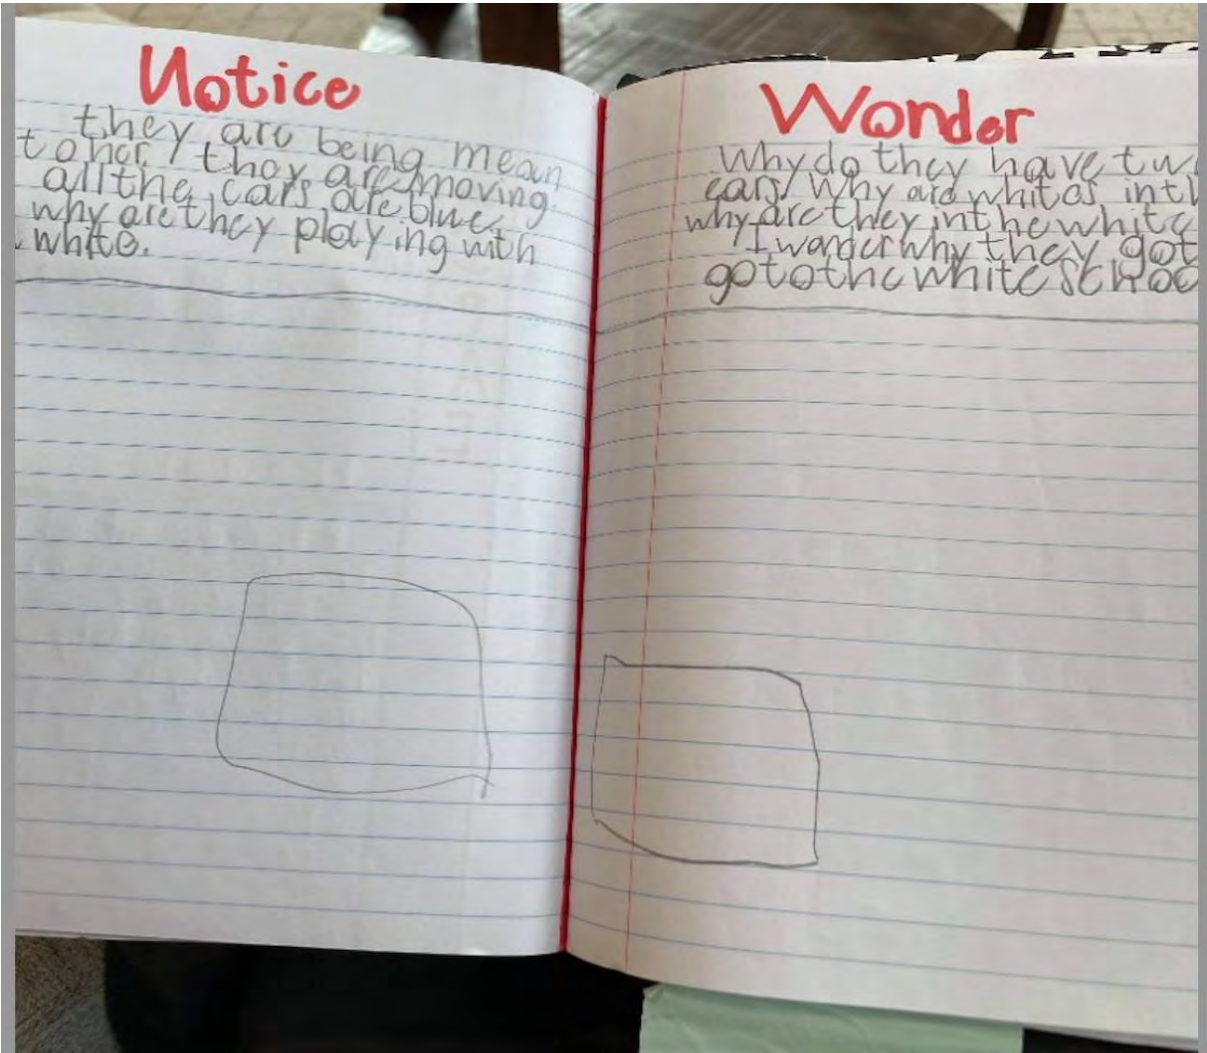 Notice
they are being mean
to her. they are moving.
all the cars are blue.
why are they playing with
white.
Wonder
Why do they have tw
cars/ Why are whites int
why are they in the white
I wonder why they got
go to the white schoo